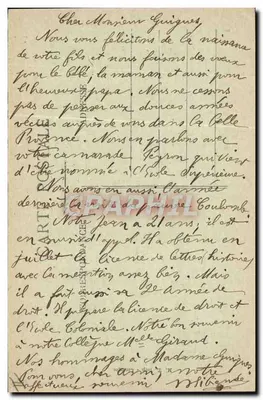 Cher Monsieur Guigues,
Nous vous félicitons de la naissance
de votre fils et nous faisons des vœux
pour le bébé, la maman et aussi pour
l'heureux papa. Nous ne cessons
pas de penser aux douces années
vécues auprès de vous dans la belle
Provence. Nous en parlons avec
votre camarade Peyron qui vient
d'être nommé à l'École Supérieure.
Nous avons eu aussi l'armée
dernière la
Notre Jean a 21 ans, il est
en Il a obtenu en
juillet la licence de lettres (histoire)
avec la mention assez bien. Mais
il a fait aussi sa 2e année de
droit. Il prépare la licence de droit et
l'École Coloniale. Notre bon souvenir
à notre Collègue Melle Giraud.
Nos hommages à Madame Guigues
Pour vous, notre
affectueux souvenir
CARTE POSTALE